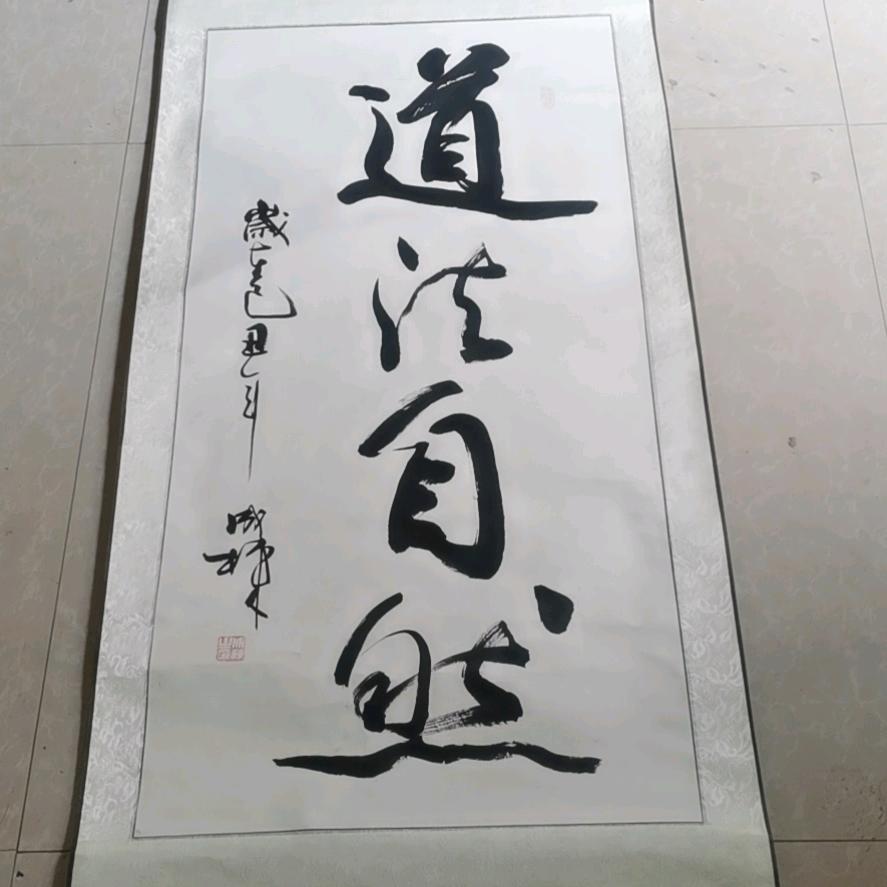 道法自然
歲在己丑年
成